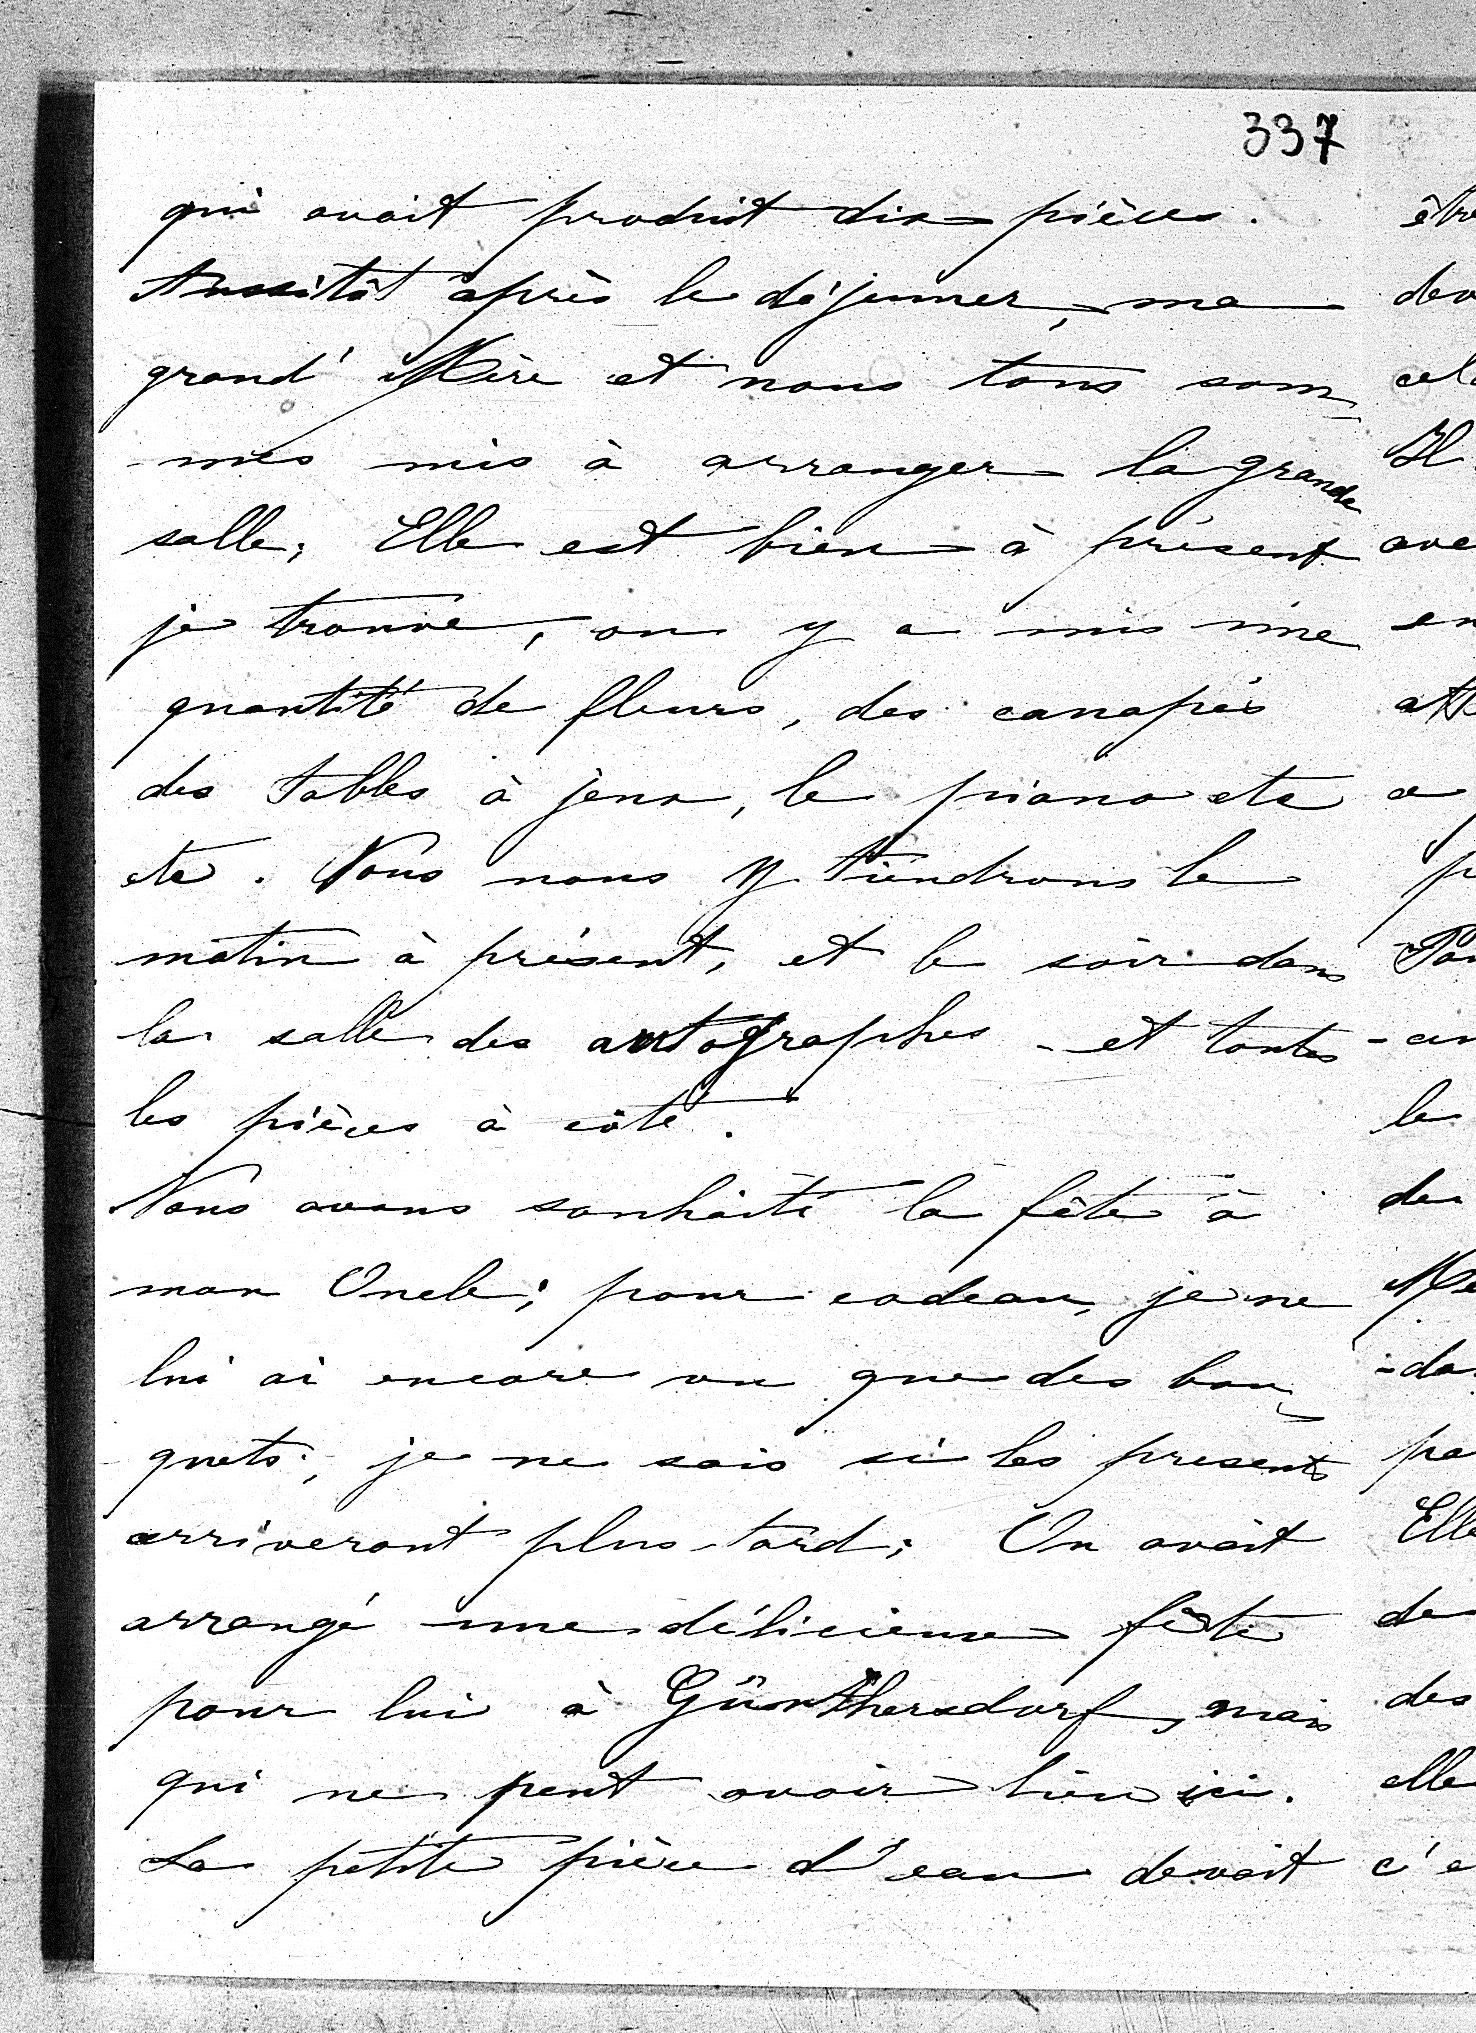 337
qui avait produit dix pièces.
Aussitôt après le déjeuner, ma
grand' Mère et nous tous som-
mes mis à arranger la grande
salle; Elle est bien à présent
je trouve, on y a mis une
quantité de fleurs, des canapés
des tables à jeux, le piano etc
etc. Nous nous y tiendrons le
matin à présent, et le soir dans
la salle des autographes - et toutes
les pièces à côté.
Nous avons souhaité la fête à
mon Oncle; pour cadeau, je ne
lui ai encore vu que des bou-
quets; je ne sais si les presents
arriveront plus tard; On avait
arrangé une délicieuse fête
pour lui à Günthersdorf, mais
qui ne peut avoir lieu ici.
La petite pièce d'eau devait
être
dev
cel
Il
ave
en
att
a
p
le
de
Me
-da
pa
Elle
de
des
elle
c'e